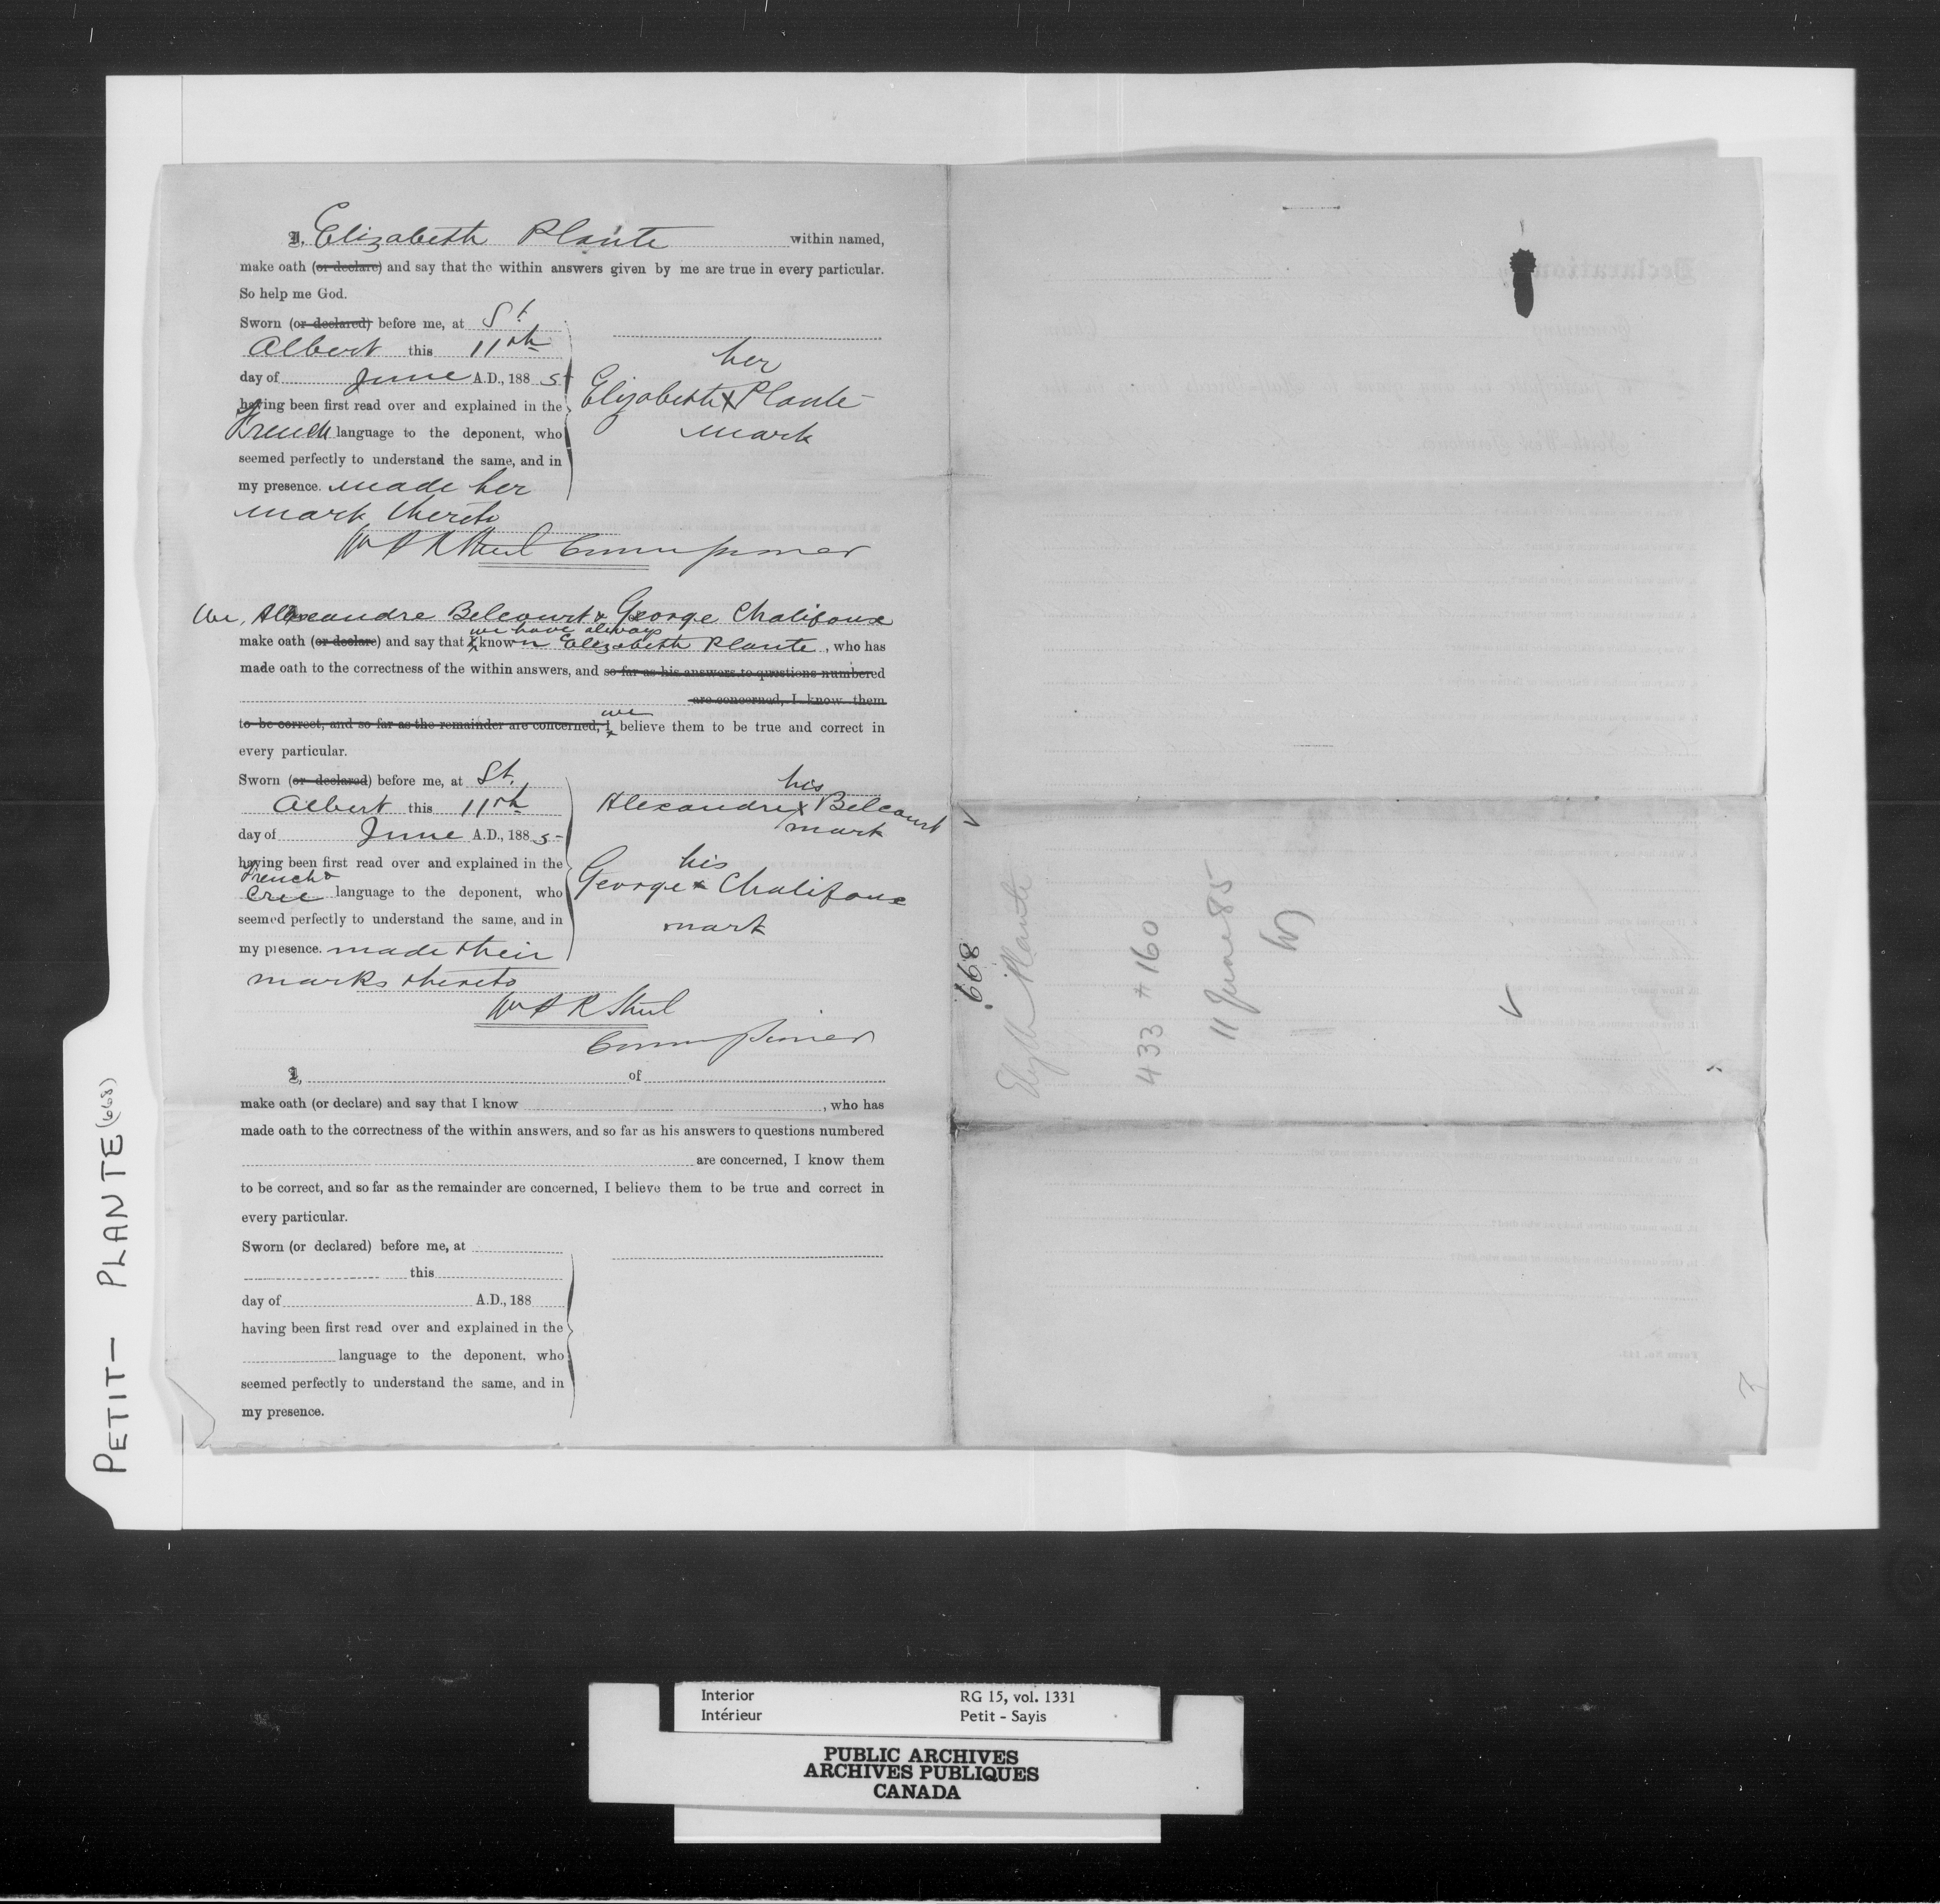 I, Elizabeth Plante within named,
make oath (or declare) and say that the within answers given by me are true in every particular.
So help me God.
Sworn (or declared) before me, at St.
Albert this 11th
day of June A.D., 1885
having been first read over and explained in the
French language to the deponent, who
seemed perfectly to understand the same, and in
my presence. made her
mark thereto
her
Elizabeth X Plante
mark
Commissioner
We, Alexandre Belcourt & George Chalifoux
we have always
make oath (or declare) and say that I known Elizabeth Plante, who has
made oath to the correctness of the within answers, and so far as his answers to questions numbered
are concerned, I know them
we
to be correct, and so far as the remainder are concerned, I believe them to be true and correct in
every particular.
Sworn (or declared) before me, at St.
Albert this 11th
day of June A.D., 1885
having been first read over and explained in the
French &
Cree language to the deponent, who
seemed perfectly to understand the same, and in
my presence. made their
marks thereto
his
Alexandre X Belcourt
mark
his
George X Chalifoux
mark
Commissioner
I, of
make oath (or declare) and say that I know , who has
made oath to the correctness of the within answers, and so far as his answers to questions numbered
are concerned, I know them
to be correct, and so far as the remainder are concerned, I believe them to be true and correct in
every particular.
Sworn (or declared) before me, at
this
day of A.D., 188
having been first read over and explained in the
language to the deponent, who
seemed perfectly to understand the same, and in
my presence.
668
Plante
433 # 160
11 June 85
PETIT - PLANTE (668)
Interior RG 15, vol. 1331
Intérieur Petit - Sayis
PUBLIC ARCHIVES
ARCHIVES PUBLIQUES
CANADA